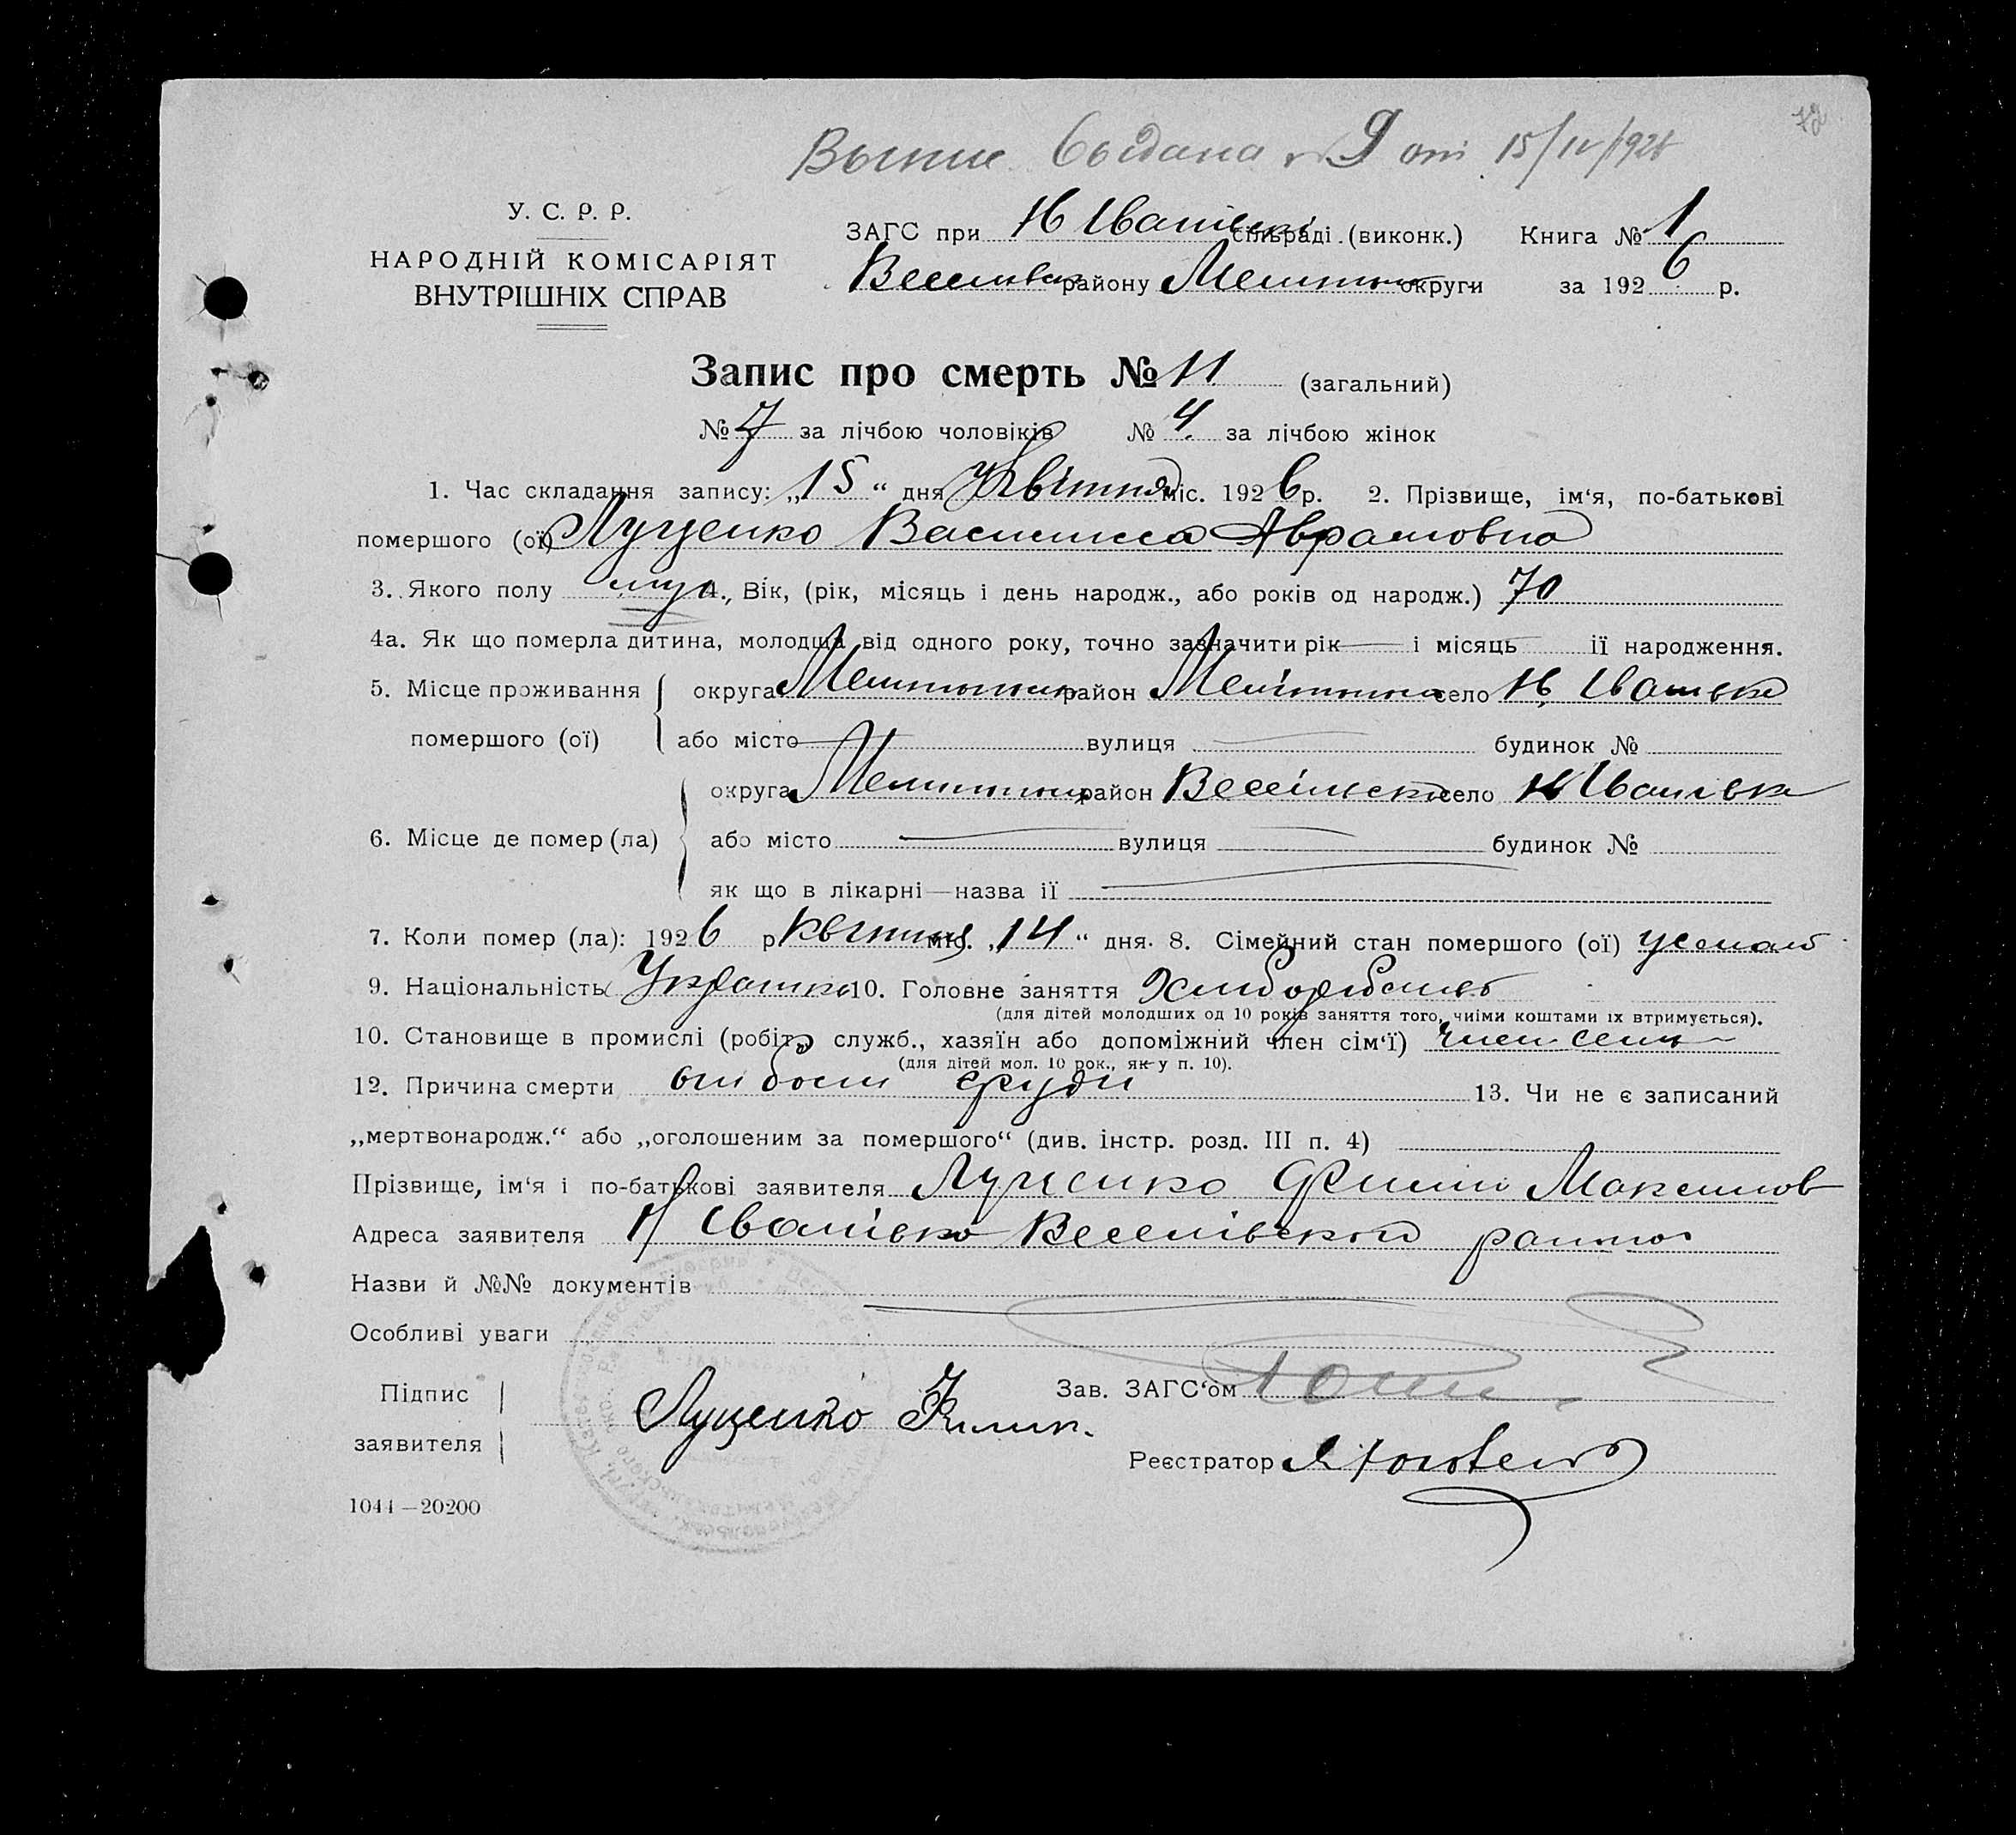 72
Выпис выдана № 9 от 15/IV/1926
У. С. Р. Р.
НАРОДНІЙ КОМІСАРІЯТ
ВНУТРІШНІХ СПРАВ
ЗАГС при Н Іванівській сільраді (виконк.) Книга № 1
Веселівськ району Мелітопол округи за 1926 р.
Запис про смерть № 11 (загальний)
№ 7 за лічбою чоловіків № 4 за лічбою жінок
1. Час складання запису: „15“ дня Квітня міс. 1926 р. 2. Прізвище, ім‘я, по-батькові
помершого (ої) Луценко Василиса Аврамовна
3. Якого полу 4., Вік, (рік, місяць і день народж., або років од народж.) 70
4а. Як що померла дитина, молодща від одного року, точно зазначити рік — і місяць її народження.
5. Місце проживання округа Мелітопольск район село Н Іванівка
помершого (ої) або місто — вулиця — будинок №
округа Мелитопол район Веселівськ село Н Іванівка
6. Місце де помер (ла) або місто — вулиця — будинок №
як що в лікарні—назва її —
7. Коли помер (ла): 1926 р Квітня міс. „14“ дня. 8. Сімейний стан помершого (ої)
9. Національність Українка 10. Головне заняття Хліборобство
(для дітей молодших од 10 років заняття того, чиїми коштами їх втримується).
10. Становище в промислі (робітн, служб., хазяїн або допоміжний член сім‘ї) член семьи
(для дітей мол. 10 рок., як у п. 10).
12. Причина смерти от боли груди 13. Чи не є записаний
„мертвонародж.“ або „оголошеним за помершого“ (див. інстр. розд. III п. 4)
Прізвище, ім‘я і по-батькові заявителя Луценко Филип Максимов
Адреса заявителя Н Іванівка Веселівський района
Назви й №№ документів
Особливі уваги
Підпис
заявителя Луценко Филип.
Зав. ЗАГС‘ом
Реєстратор
1044—20200